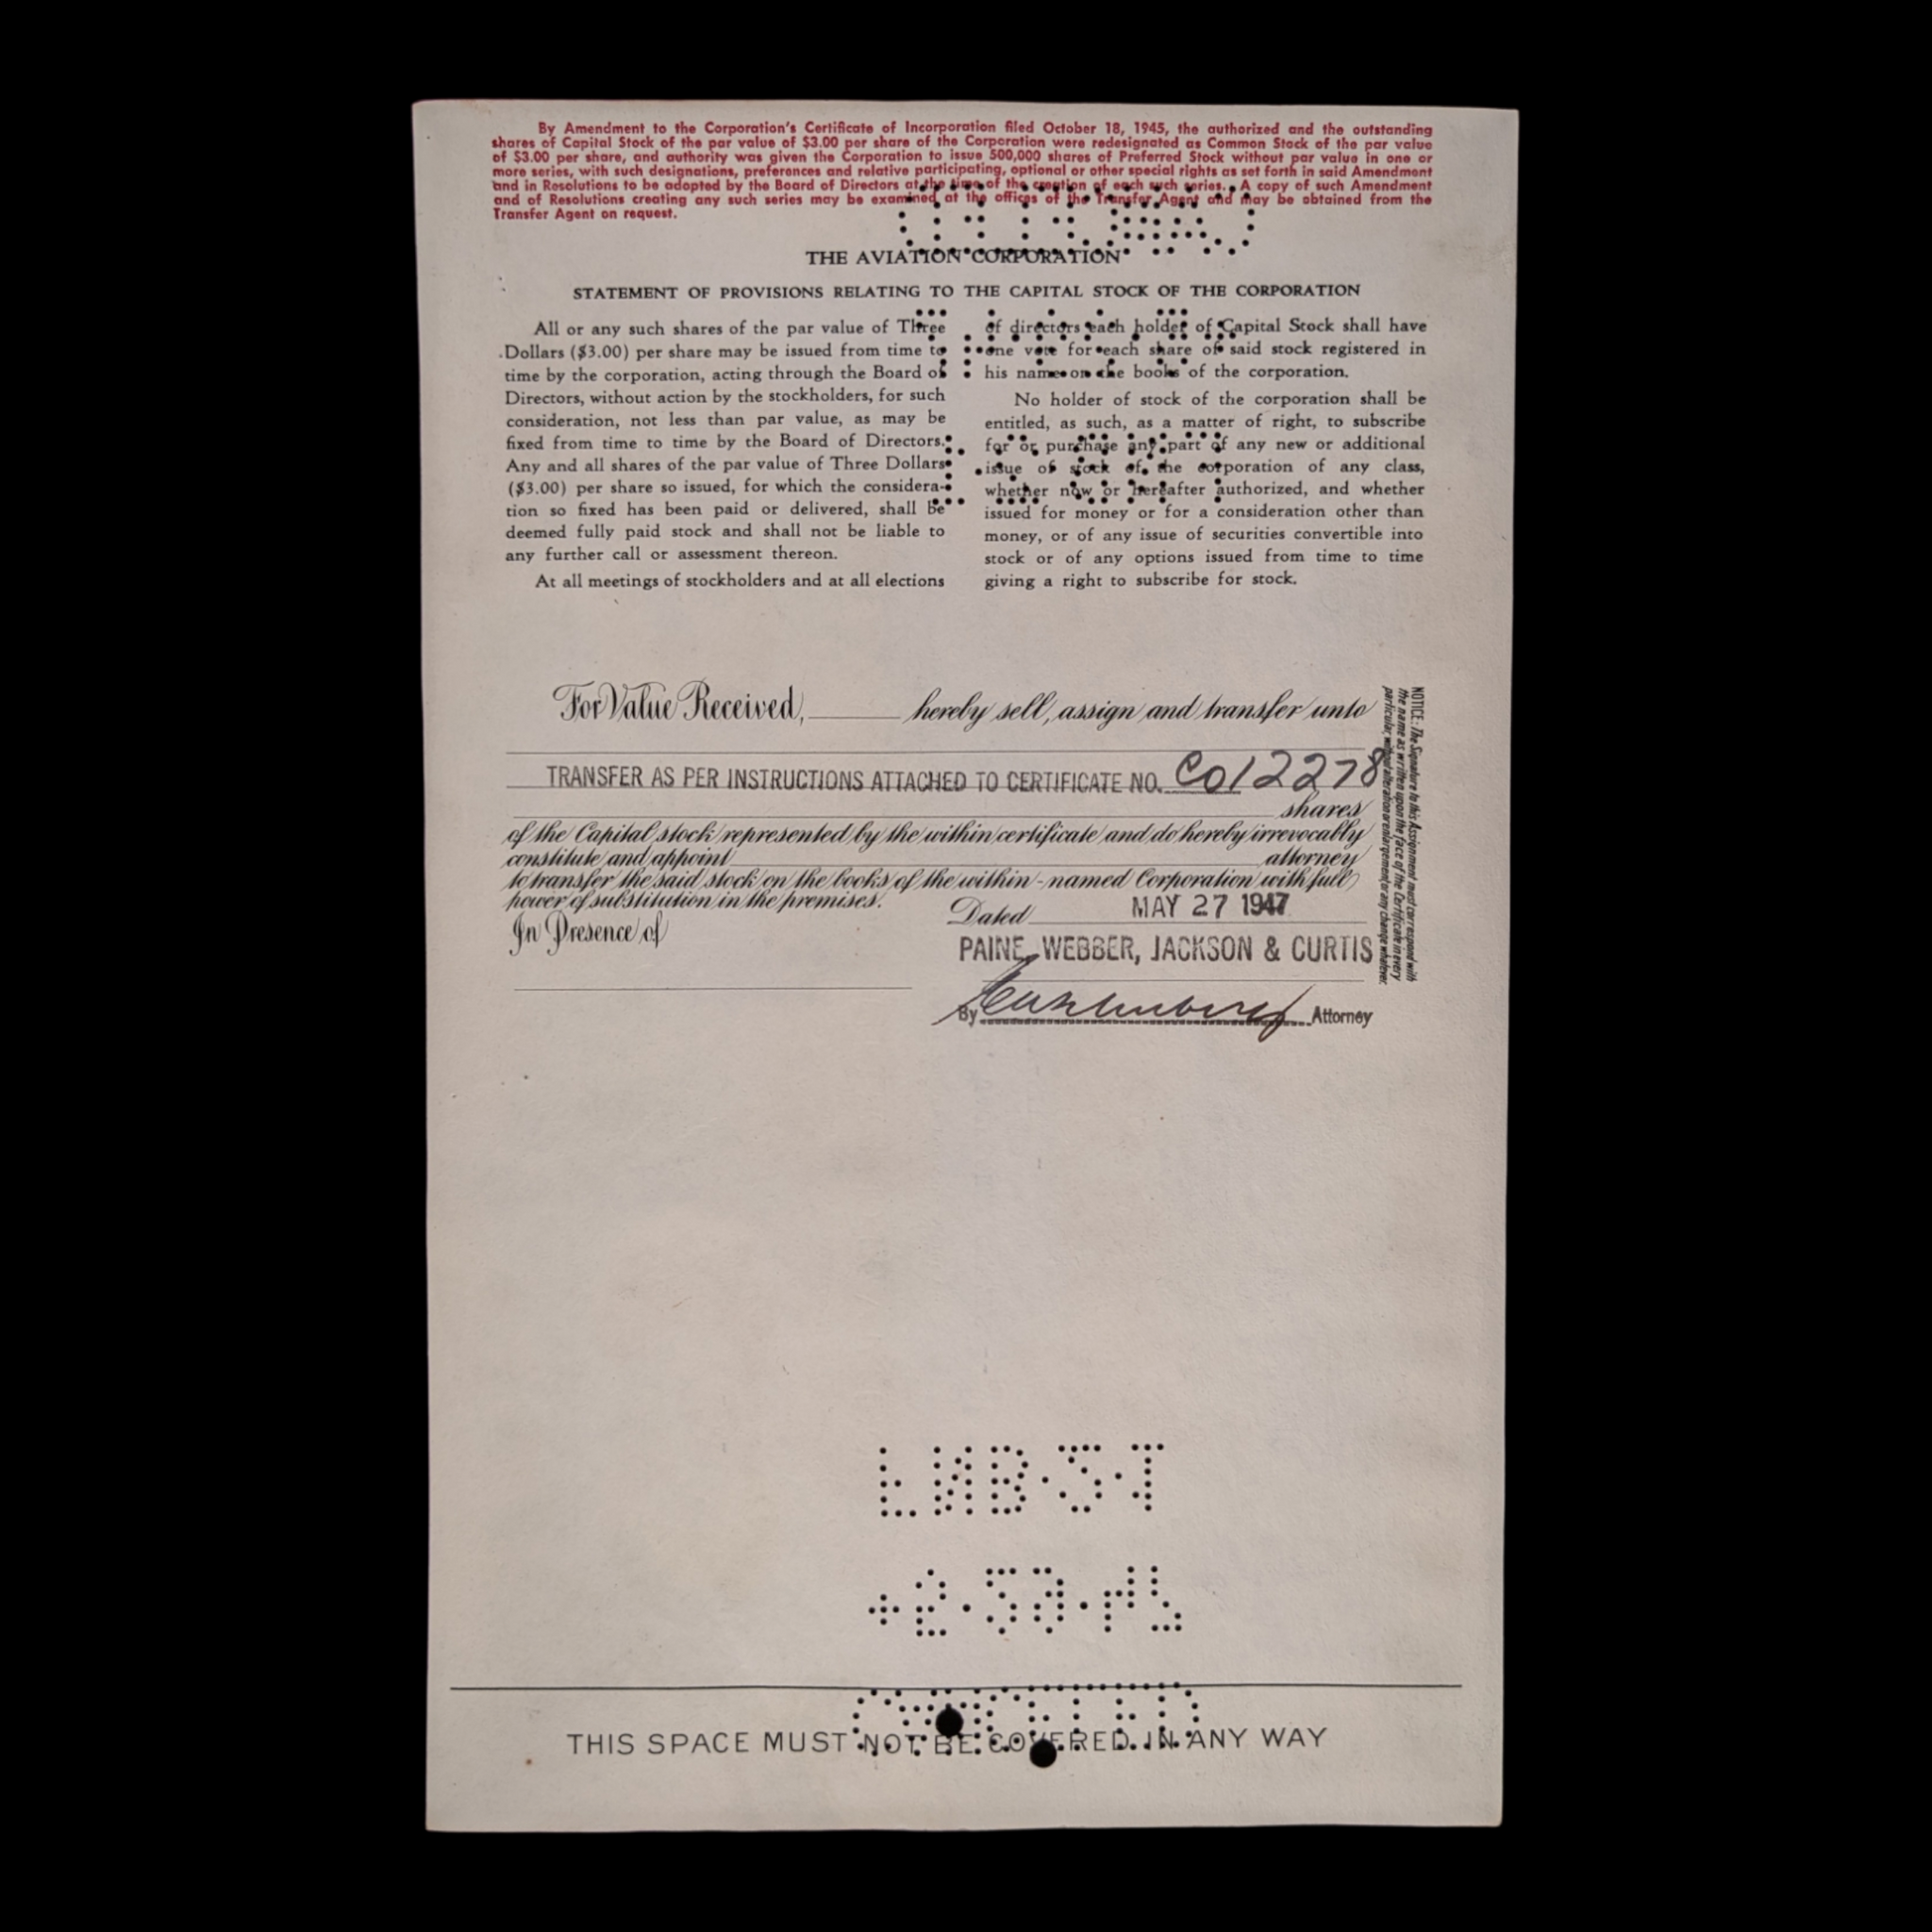 By Amendment to the Corporation's Certificate of Incorporation filed October 18, 1945, the authorized and the outstanding
shares of Capital Stock of the par value of $3.00 per share of the Corporation were redesignated as Common Stock of the par value
of $3.00 per share, and authority was given the Corporation to issue 500,000 shares of Preferred Stock without par value in one or
more series, with such designations, preferences and relative participating, optional or other special rights as set forth in said Amendment
and in Resolutions to be adopted by the Board of Directors at the time of the creation of each such series. A copy of such Amendment
and of Resolutions creating any such series may be examined at the offices of the Transfer Agent and may be obtained from the
Transfer Agent on request.
THE AVIATION CORPORATION
STATEMENT OF PROVISIONS RELATING TO THE CAPITAL STOCK OF THE CORPORATION
All or any such shares of the par value of Three
Dollars ($3.00) per share may be issued from time to
time by the corporation, acting through the Board of
Directors, without action by the stockholders, for such
consideration, not less than par value, as may be
fixed from time to time by the Board of Directors.
Any and all shares of the par value of Three Dollars
($3.00) per share so issued, for which the considera-
tion so fixed has been paid or delivered, shall be
deemed fully paid stock and shall not be liable to
any further call or assessment thereon.
At all meetings of stockholders and at all elections
of directors each holder of Capital Stock shall have
one vote for each share of said stock registered in
his name on the books of the corporation.
No holder of stock of the corporation shall be
entitled, as such, as a matter of right, to subscribe
for or purchase any part of any new or additional
issue of stock of the corporation of any class,
whether now or hereafter authorized, and whether
issued for money or for a consideration other than
money, or of any issue of securities convertible into
stock or of any options issued from time to time
giving a right to subscribe for stock.
For Value Received, hereby sell, assign and transfer unto
TRANSFER AS PER INSTRUCTIONS ATTACHED TO CERTIFICATE NO. C012278
shares
of the Capital stock represented by the within certificate and do hereby irrevocably
constitute and appoint attorney
to transfer the said stock on the books of the within-named Corporation with full
power of substitution in the premises.
Dated MAY 27 1947
In Presence of
PAINE, WEBBER, JACKSON & CURTIS
By Attorney
NOTICE: The Signature to this Assignment must correspond with
the name as written upon the face of the Certificate in every
particular, without alteration or enlargement or any change whatever.
THIS SPACE MUST NOT BE COVERED IN ANY WAY